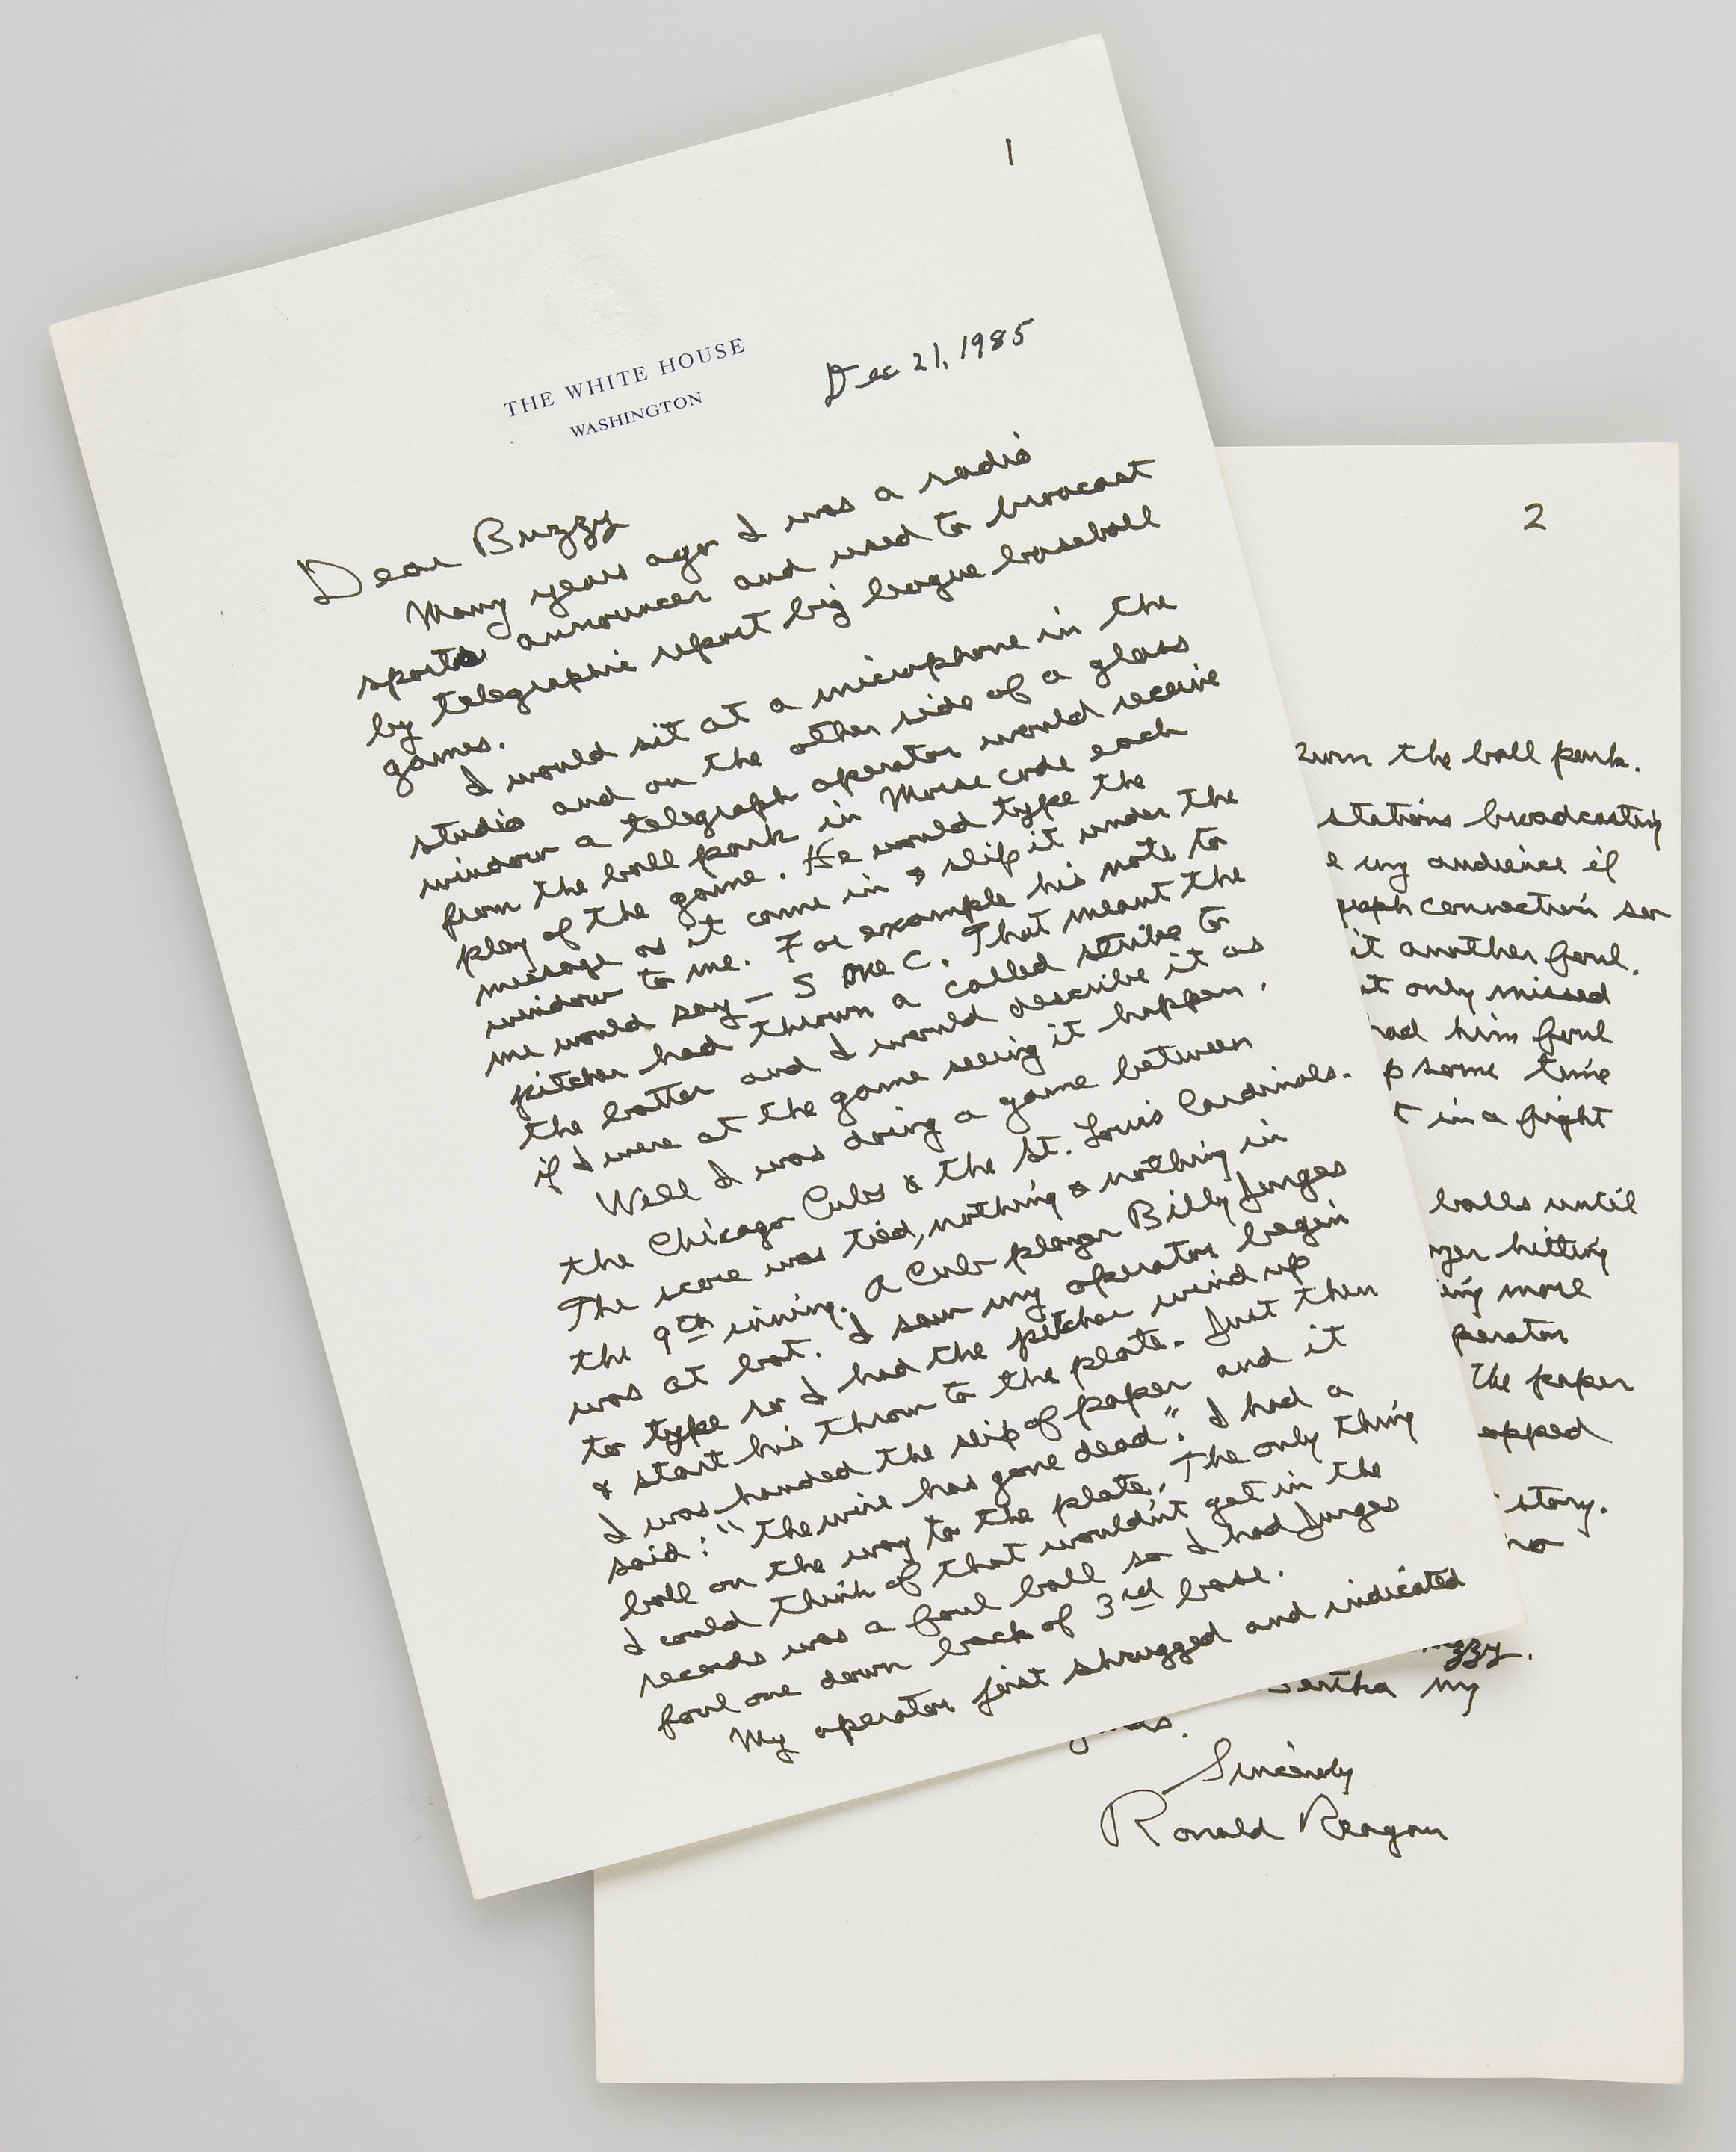 1
THE WHITE HOUSE
WASHINGTON
Dec 21, 1985
Dear Buzzy
Many years ago I was a radio
sports announcer and used to broacast
by telegraphic report big league baseball
games.
I would sit at a microphone in the
studio and on the other side of a glass
window a telegraph operator would receive
from the ball park in Morse code each
play of the game. He would type the
message as it came in & slip it under the
window to me. For example his note to
me would say — S one C. That meant the
pitcher had thrown a called strike to
the batter and I would describe it as
if I were at the game seeing it happen.
Well I was doing a game between
the Chicago Cubs & the St. Louis Cardinals.
The score was tied, nothing & nothing in
the 9th inning. A Cub player Billy Jurges
was at bat. I saw my operator begin
to type so I had the pitcher wind up
& start his throw to the plate. Just then
I was handed the slip of paper and it
said: "the wire has gone dead". I had a
ball on the way to the plate. The only thing
I could think of that wouldn't get in the
records was a foul ball so I had Jurges
foul one down back of 3rd base.
My operator just shrugged and indicated
2
the ball park.
stations broadcasting
my audience if
connection so
it another foul.
only missed
had him foul
some time
in a fight
balls until
hitting
more
the paper
story.
my
Sincerely
Ronald Reagan